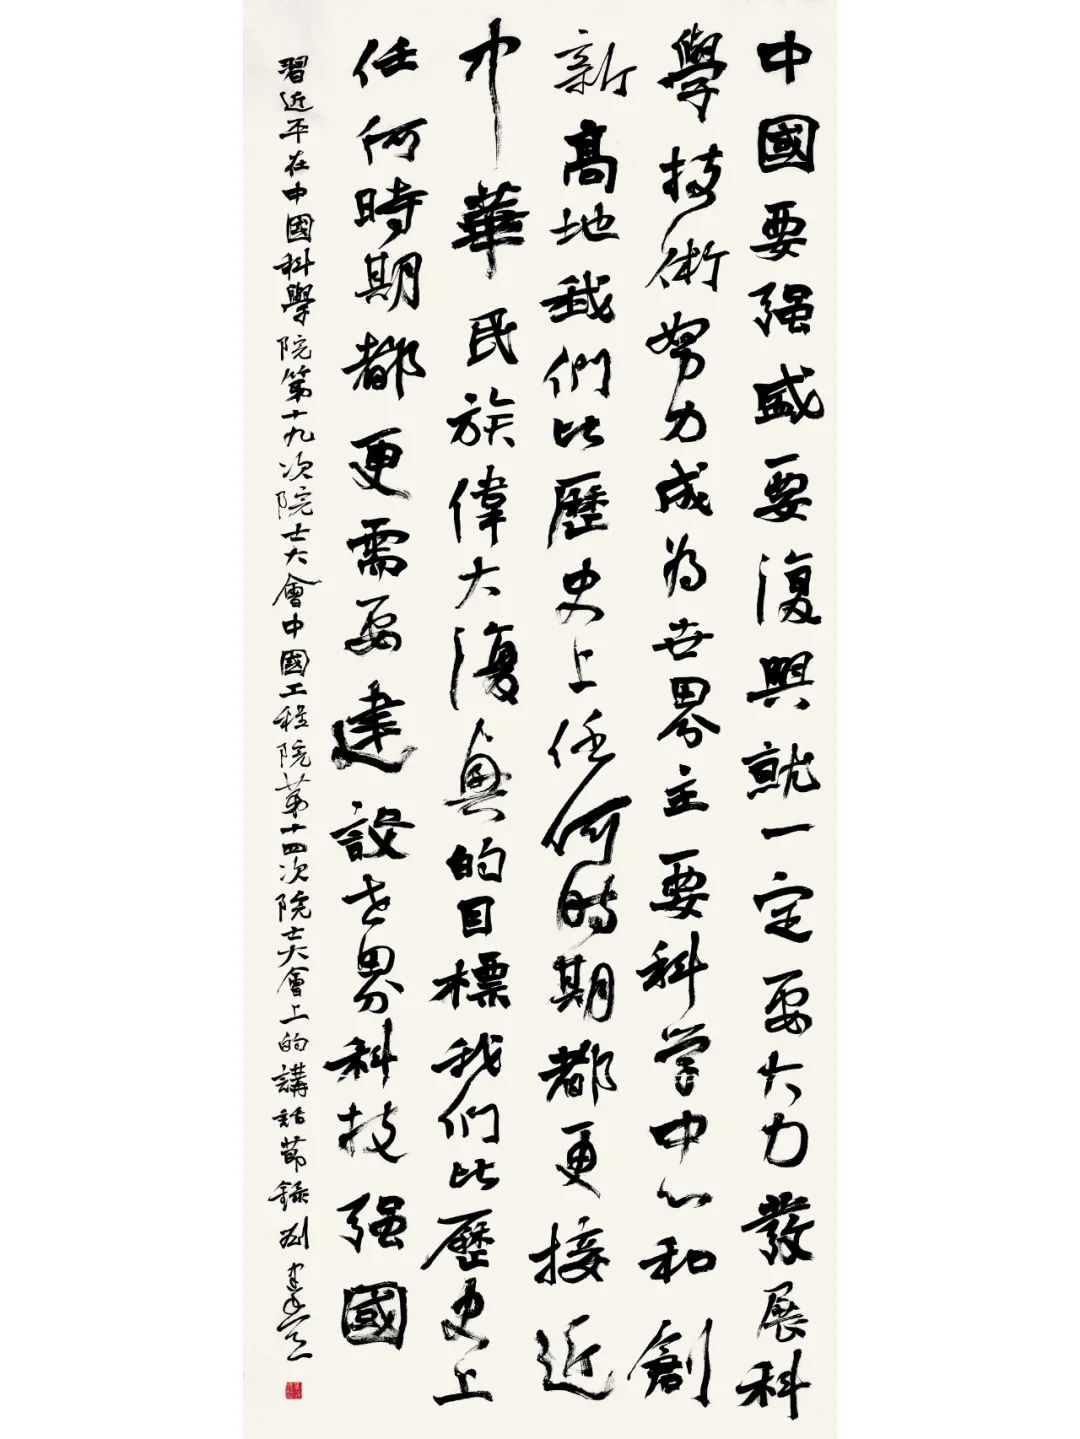 中國要强盛要復興就一定要大力發展科
學技術努力成为世界主要科学中心和創
新高地我們比歷史上任何時期都更接近
中華民族偉大復興的目標我们比歷史上
任何時期都更需要建設世界科技强國
習近平在中國科學院第十九次院士大會中國工程院第十四次院士大會上的講話節録劉